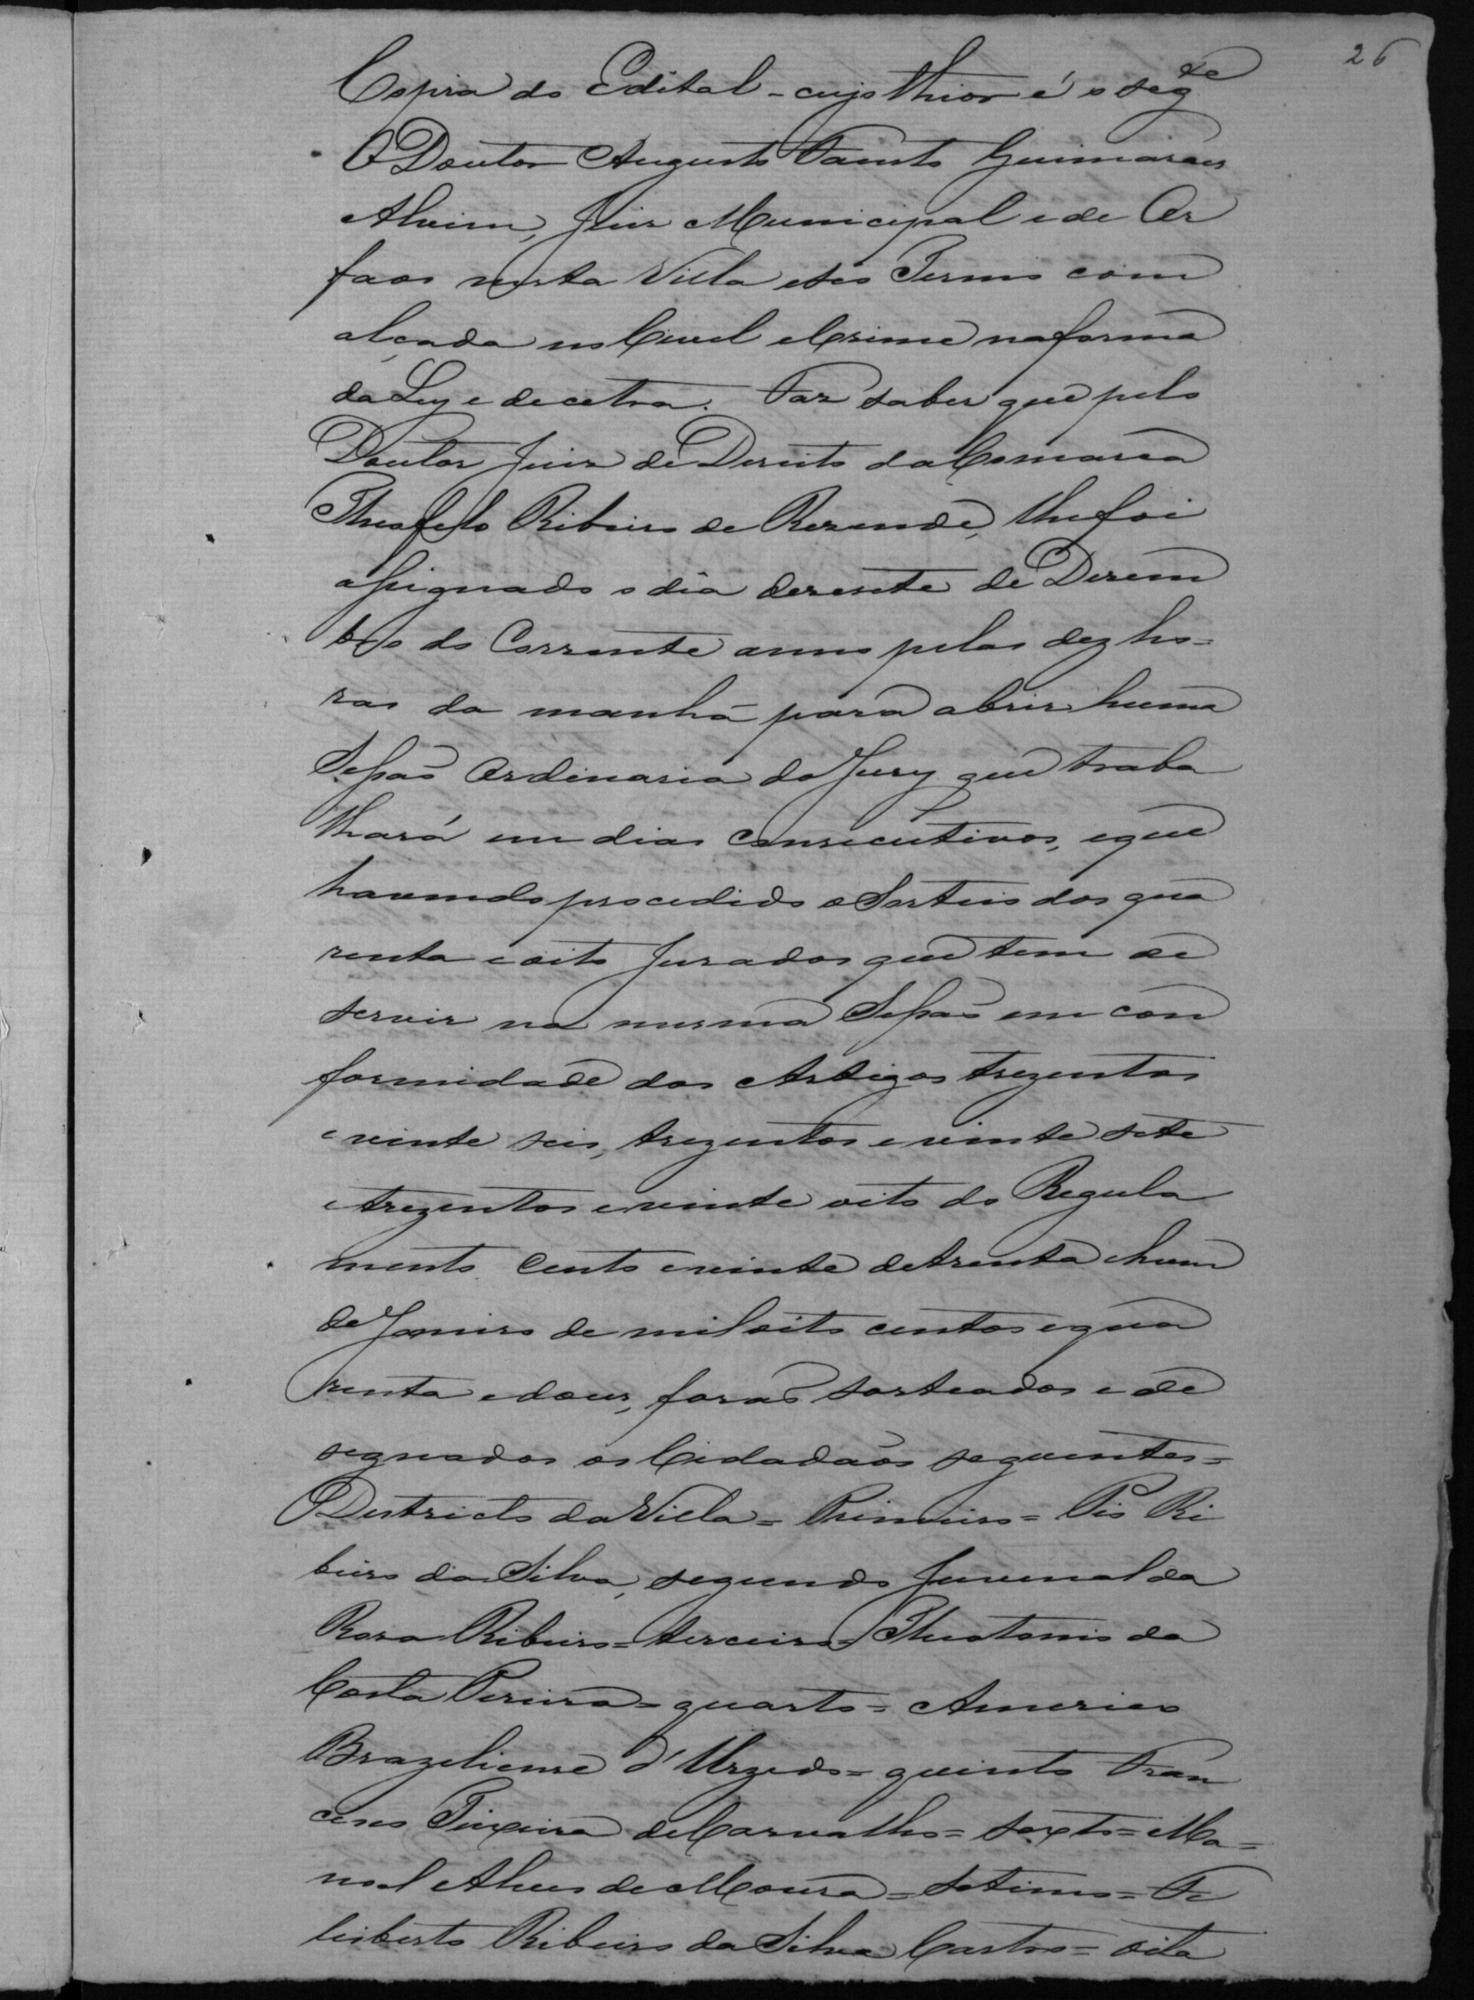 26
Copia do Edital - cujo thior é o segte
O Doutor Augusto Fausto Guimarães
Alvim, Juiz Municipal e de Or
faos nesta Villa e seo Termo com
alçada no Civel e Crime na forma
da Ley e decetra. Faz saber que pelo
Doutor Juiz de Dereito da Comarca
Theofilo Ribeiro de Rezende, lhe foi
assignado o dia dezesete de Dezem
bro do Corrente anno pelas dez ho=
ras da manhã para abrir huma
Sessaõ Ordinaria do Jury que traba
lhará em dias consecutivos, e que
havendo procedido o Sorteio dos qua
renta e oito Jurados que tem de
servir na mesma Sessaõ em con
formidade dos Artigos trezentos
e vinte seis, trezentos e vinte sete
e trezentos e vinte oito do Regula
mento cento e vinte de trenta e hum
de Janeiro de mil oito centos e qua
renta e dous, foraõ sorteados e de
segnados os Cidadaõs seguintes=
Destricto da Villa = Primeiro = Pio Ri
beiro da Silva, segundo Juvenal da
Rosa Ribeiro= terceiro= Theotonio da
Costa Pereira= quarto= Americo
Brazeliense d'Urzedo= quinto Fran
cisco Teixeira de Carvalho= sexto= Ma=
noel Alves de Moura= Setimo= Fe
lisberto Ribeiro da Silva Castro= oita